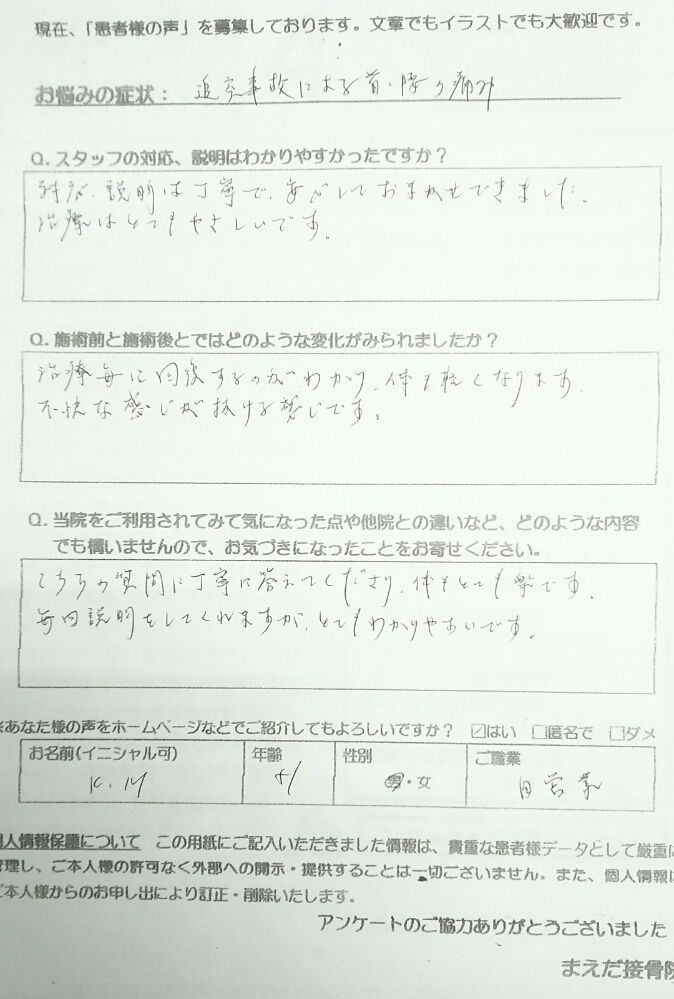 現在、「患者様の声」を募集しております。文章でもイラストでも大歓迎です。
お悩みの症状： 追突事故による首・腰の痛み
Q. スタッフの対応、説明はわかりやすかったですか？
対応、説明は丁寧で、安心しておまかせできました。
治療はとてもやさしいです。
Q. 施術前と施術後とではどのような変化がみられましたか？
治療毎に回復するのがわかり、体も軽くなります。
不快な感じが抜ける感じです。
Q. 当院をご利用されてみて気になった点や他院との違いなど、どのような内容
でも構いませんので、お気づきになったことをお寄せください。
こちらの質問に丁寧に答えてくださり、体もとても楽です。
毎回説明をしてくれますが、とてもわかりやすいです。
※あなた様の声をホームページなどでご紹介してもよろしいですか？ ☑はい □匿名で □ダメ
お名前(イニシャル可) 年齢 性別 ご職業
K.M 男・女 自営業
個人情報保護について この用紙にご記入いただきました情報は、貴重な患者様データとして厳重に
管理し、ご本人様の許可なく外部への開示・提供することは一切ございません。また、個人情報は
ご本人様からのお申し出により訂正・削除いたします。
アンケートのご協力ありがとうございました
まえだ接骨院